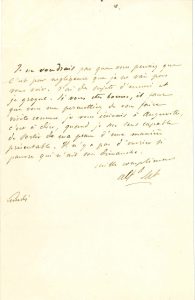 Je ne voudrais pas que vous pensiez que
c'est par négligence que je ne vais pas
vous voir. J'ai du sujet d'ennui et
je grogne. Si vous êtes bonne, et
que vous me permettiez de vous faire
visite comme je vous écrivais à Augerville,
c'est à dire, quand je me sens capable
de sortir de ma peau d'une manière
présentable. Il n'y a pas d'ouvrier si
pauvre qui n'ait son Dimanche.
mille compliments